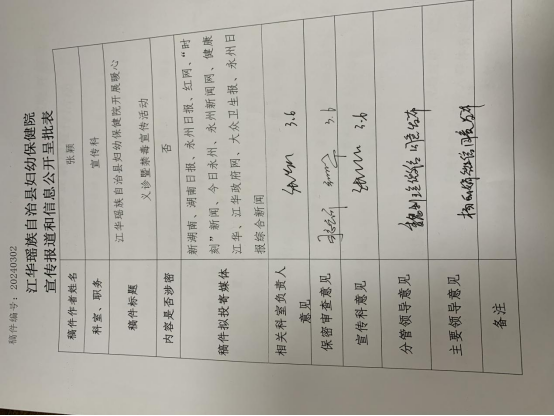 稿件编号：20240302
江华瑶族自治县妇幼保健院
宣传报道和信息公开呈批表
稿件作者姓名 张颖
科室、职务 宣传科
稿件标题 江华瑶族自治县妇幼保健院开展暖心
义诊暨禁毒宣传活动
内容是否涉密 否
稿件拟投寄媒体 新湖南、湖南日报、永州日报、红网、“时
刻”新闻、今日永州、永州新闻网、健康
江华、江华政府网、大众卫生报、永州日
报综合新闻
相关科室负责人
意见 3.6
保密审查意见 3.6
宣传科意见 3.6
分管领导意见
主要领导意见
备注